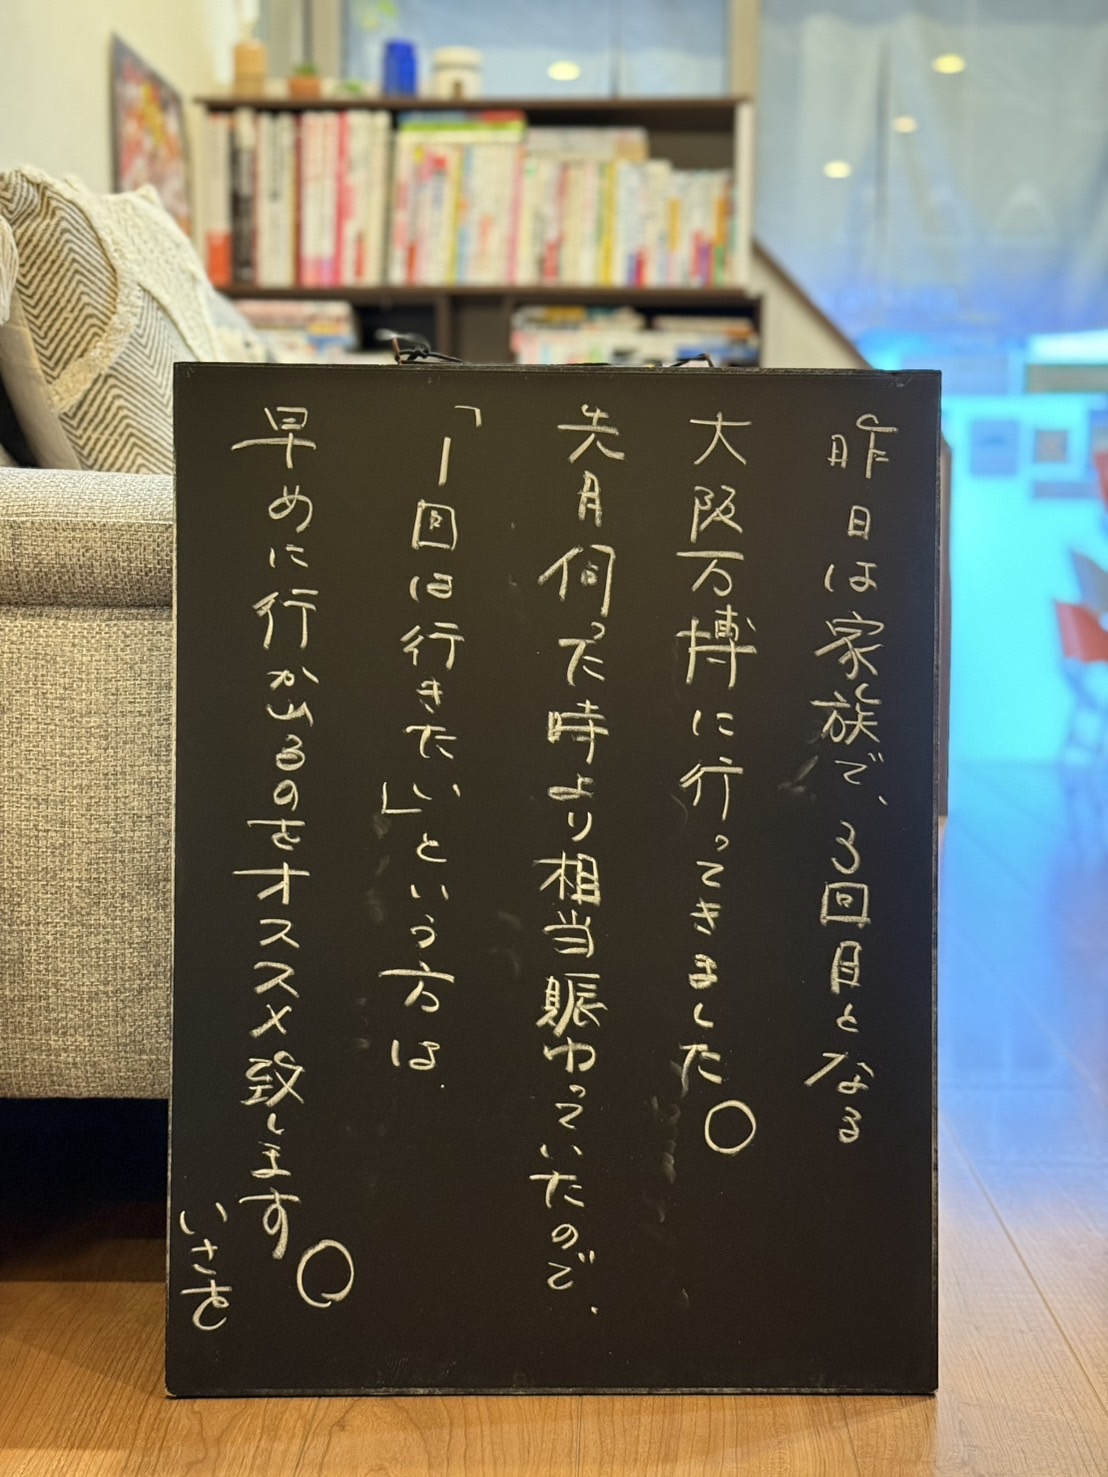 昨日は家族で、3回目となる
大阪万博に行ってきました。
先月伺った時より相当賑わっていたので、
「1回は行きたい」という方は、
早めに行かれるのをオススメ致します。
いさを